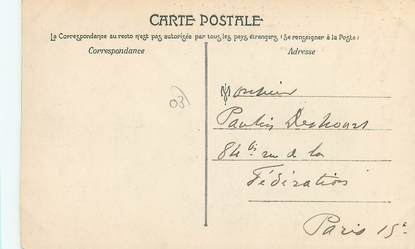 CARTE POSTALE
La Correspondance au recto n'est pas autorisée par tous les pays étrangers (Se renseigner à la Poste)
Correspondance
Adresse
03)
Monsieur
Paulin
84 bis rue de la
Fédération
Paris 15e